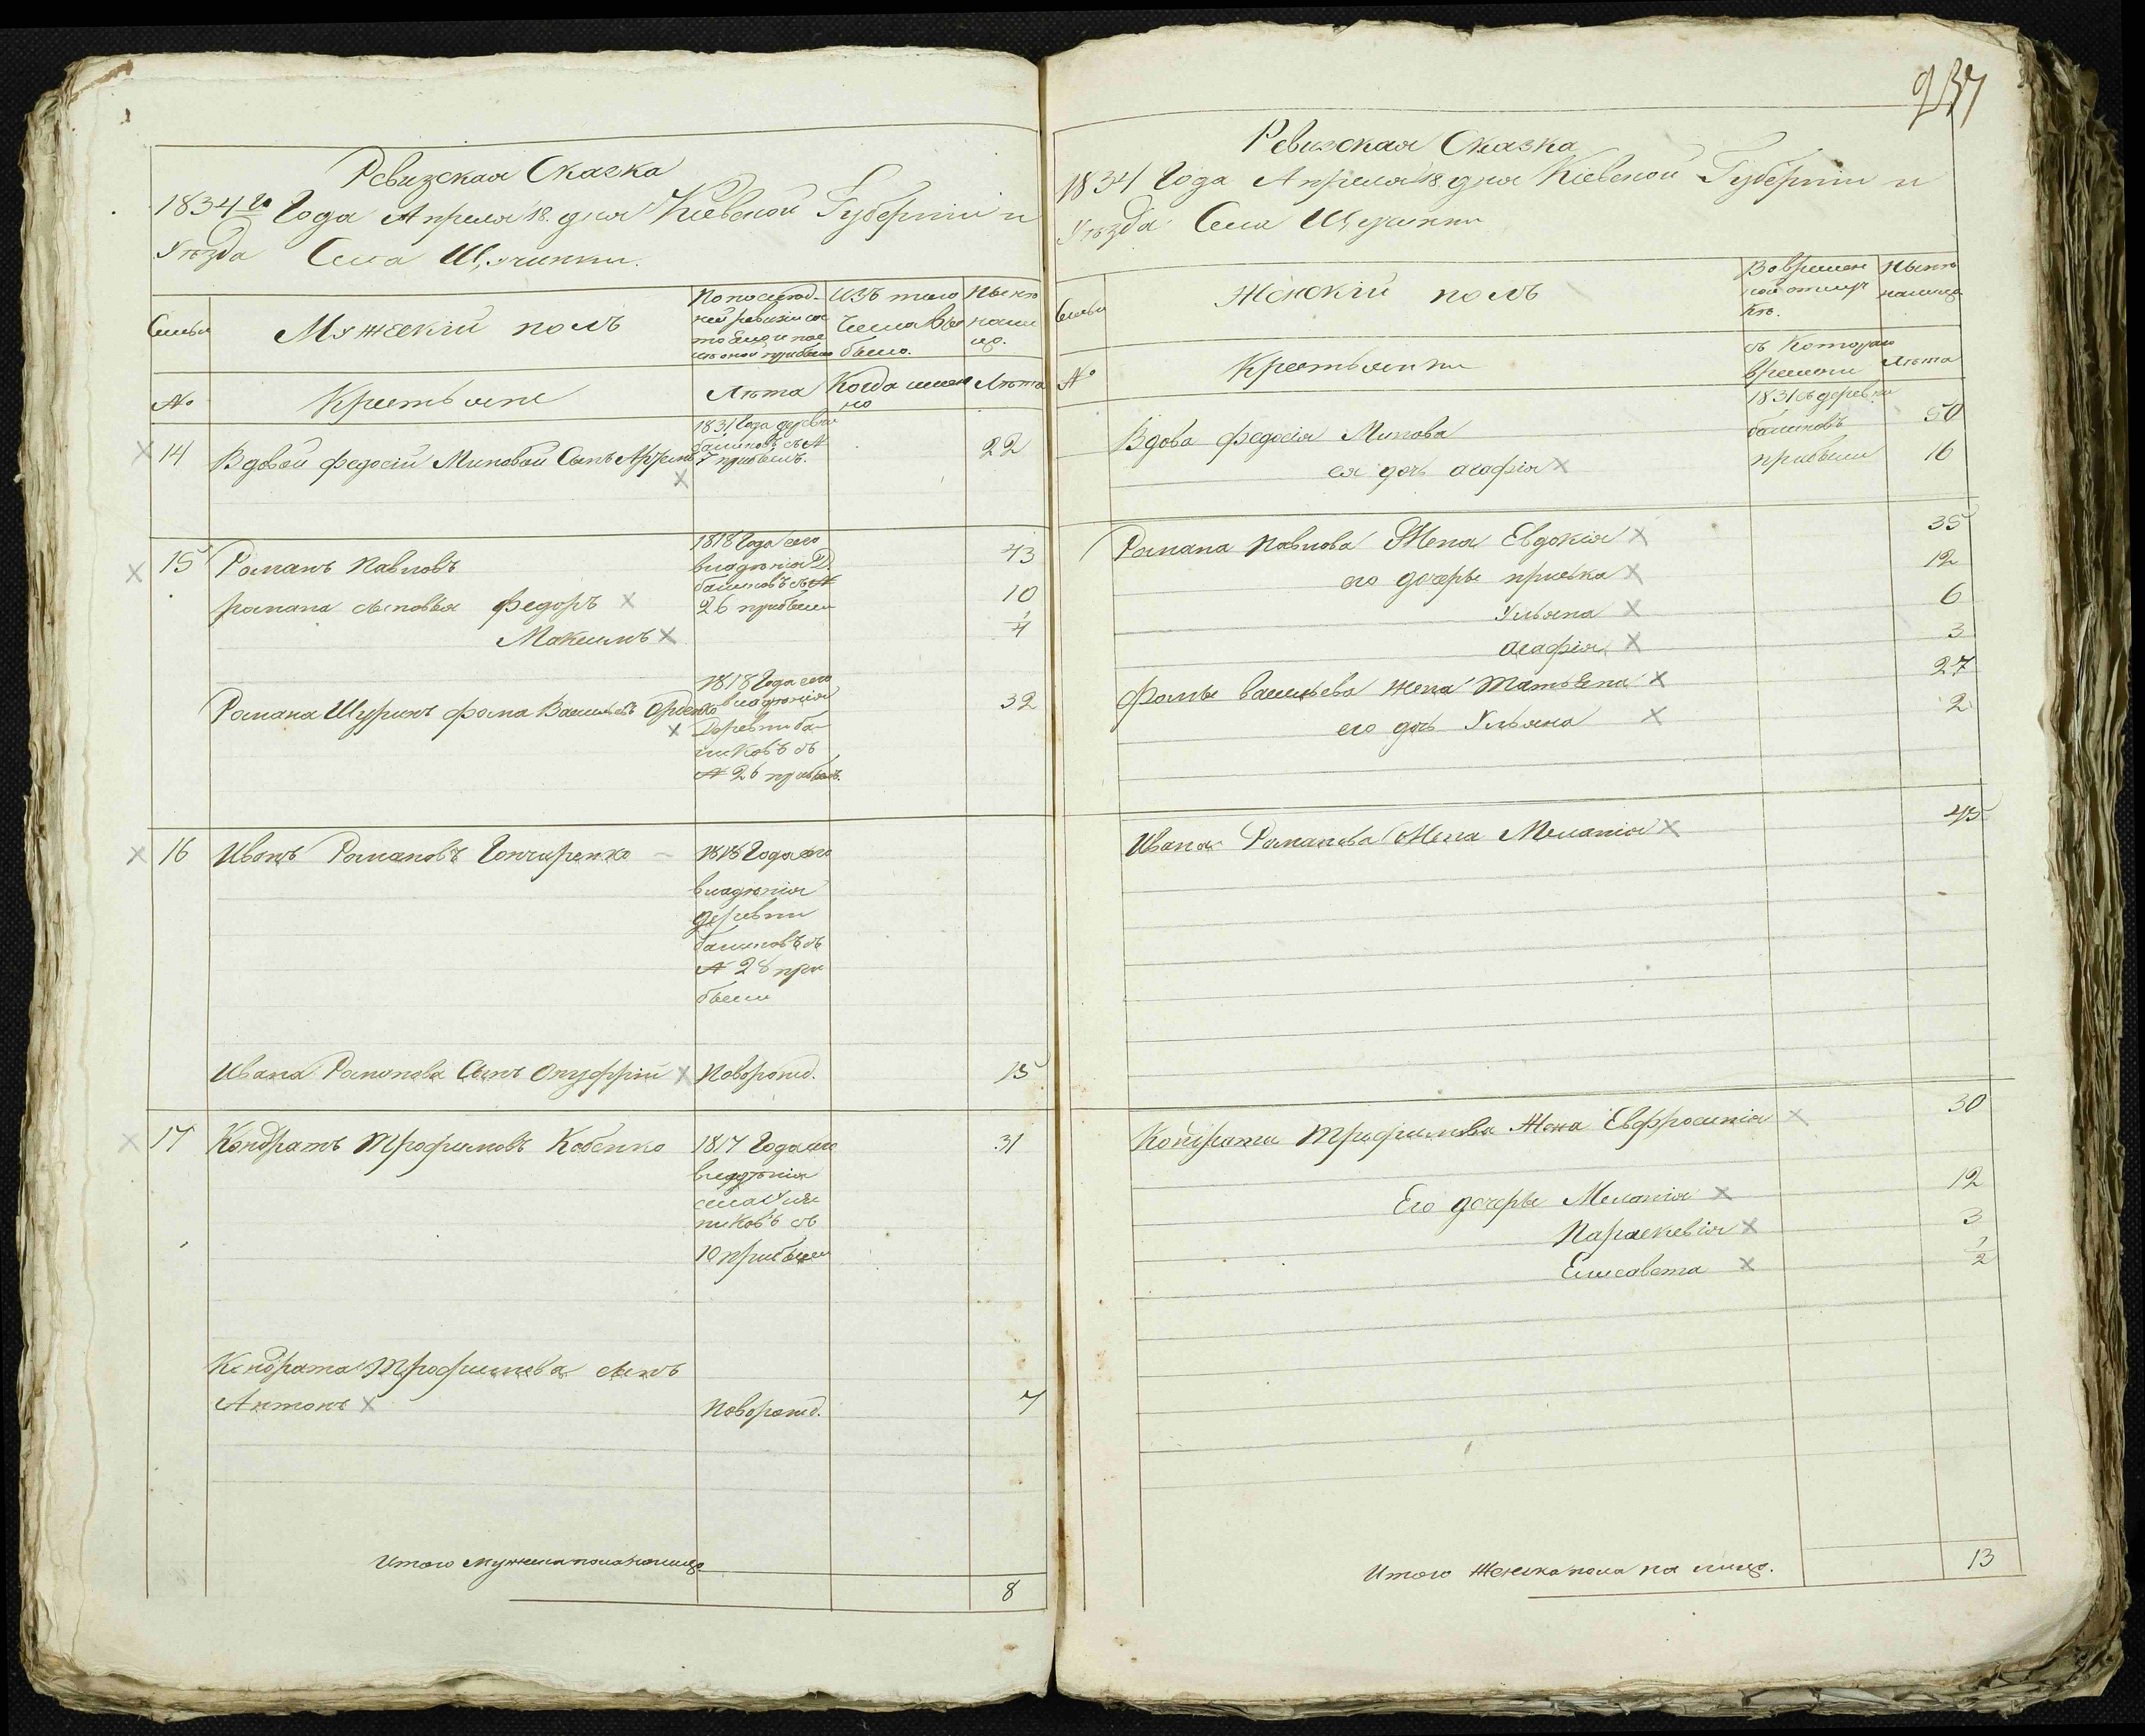 Ревизская Сказка
1834 го Года Апреля 18 дня Кіевской Губерніи и
Уѣзда Села Щучинки.
Семьи
Мужескій полъ
По послѣд-
ней ревизіи со
стояло и пос
лѣ оной прибыло
Изъ того
числа вы
было.
Нынѣ
на ли
цо.
№
Крестьяне
Лѣта
Когда имен
но
Лѣта
14
Вдовой Федосіи Миновой Сынъ Артемъ
1831 Года деревни
балыковъ съ №
7 прибылъ.
22
15
Романъ Павловъ
1818 Года сего
владѣнія Д.
балыковъ съ №
26 прибыли
43
романа сыновья Федоръ
10
Максимъ
1/4
Романа Шуринъ фома Васильевъ
1818 Года сего
владѣнія
Деревни ба-
лыковъ съ
№ 26 прибылъ.
32
16
Иванъ Романовъ Гончаренко
1818 Года сего
владѣнія
деревни
балыковъ съ
№ 28 при
были
Ивана Романова Сынъ Онуфрій
Новорожд.
15
17
Кондратъ Трофимовъ Кобенко
1817 Года сего
владѣнія
села
никовъ съ
10 прибыли
31
Кондрата Трофимова сынъ
Антонъ
Новорожд.
7
Итого мужеска пола на лицо
8
237
Ревизская Сказка
1834 Года Апреля 18 дня Кіевской Губерніи и
Уѣзда Села Щучинки
Семьи
Женскій полъ
Во времен
ной отлуч
кѣ.
Нынѣ
на лицо
№
Крестьянки
съ Котораго
времени
Лѣта
Вдова Федосія Минова
1831 съ деревни
балыковъ
50
ея дочь агафія
прибыли
16
Романа Павлова Жена Евдокія
35
его дочеры приська
12
Ульяна
6
агафія
3
Фомы васильева жена Татьяна
27
его дочь Ульяна
2
Ивана Романова Жена Меланія
45
Кондрата Трофимова Жена Евфросинія
30
Его дочеры Меланія
12
Параскевія
3
Елисавета
1/2
Итого Женска пола на лицо.
13